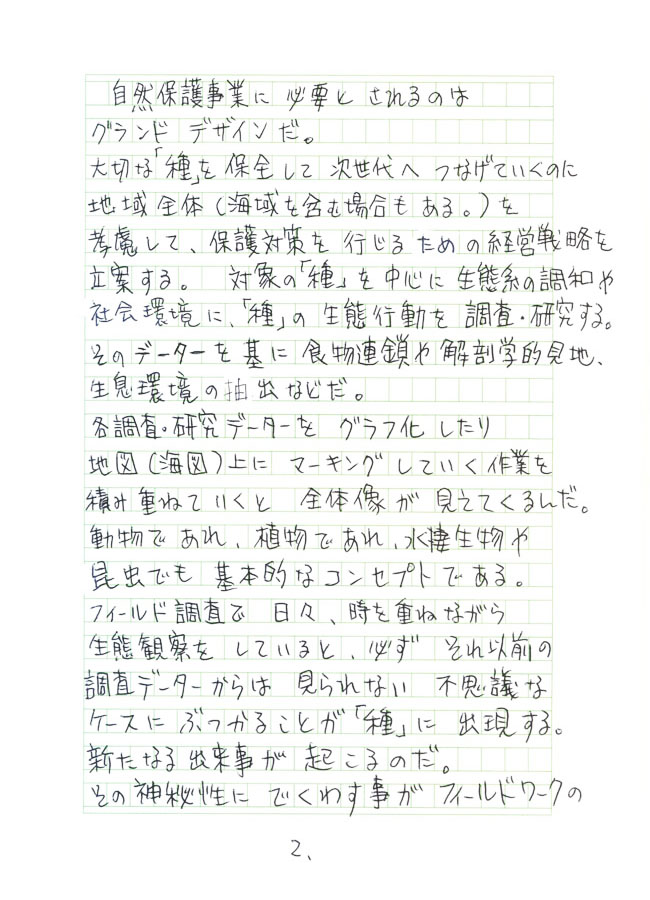 自然保護事業に 必要と されるのは
グランド デザインだ。
大切な「種」を 保全して 次世代へ つなげていくのに
地域全体(海域を含む場合も ある。)を
考慮して、保護対策を 行じる ための経営戦略を
立案する。 対象の「種」を中心に 生態系の調和や
社会環境に、「種」の 生態行動を 調査・研究する。
そのデーターを 基に 食物連鎖や 解剖学的見地、
生息環境の抽出などだ。
各調査・研究データーを グラフ化 したり
地図(海図)上に マーキングしていく作業を
積み重ねていくと 全体像が 見えてくるんだ。
動物であれ、植物であれ、水棲生物や
昆虫でも 基本的なコンセプトである。
フィールド調査で 日々、時を重ねながら
生態観察を していると、必ず それ以前の
調査データーからは 見られない 不思議な
ケースに ぶつかることが「種」に 出現する。
新たなる出来事が 起こるのだ。
その神秘性に でくわす事が フィールドワークの
2、